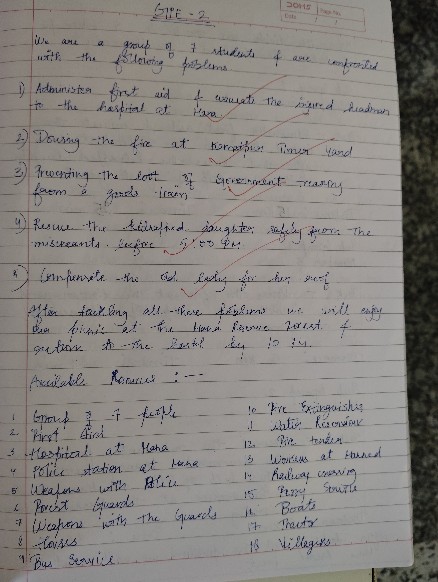 GTE - 2
DOMS Page No.
Date / /
We are a group of 7 students & are confronted
with the following problems
1) Administer first aid & evacuate the injured headman
to the hospital at Hara
2) Dousing the fire at Timber Yard
3) Preventing the loot of Government
from a goods train
4) Rescue the kidnapped daughter safely from the
miscreants before 5:00 PM
5) Compensate the old lady for her roof
After tackling all these problems we will enjoy
our picnic at the Hara Reserve Forest &
to the by 10
Available :---
1 Group of 7 people
2 First Aid
3 Hospital at Hara
4 Police station at Hara
5 Weapons with Police
6 Forest Guards
7 Weapons with the Guards
8 Horses
9 Bus Service
10 Fire Extinguisher
Water Reservoir
12 Fire tender
Workers at
Railway crossing
15 Ferry
16 Boats
17 Tractor
18 Villagers